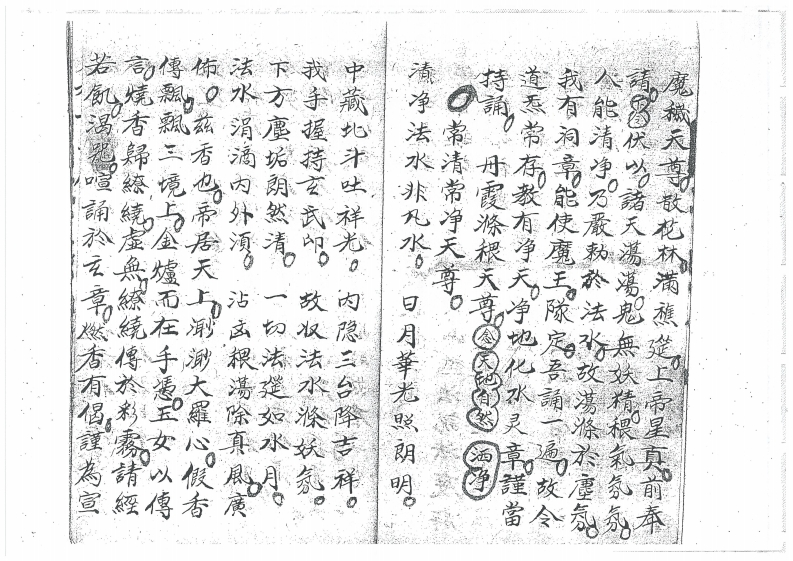 魔穢天尊。散花林滿蘸筵上帝星真前奉
請。伏以諸天蕩蕩。鬼無妖精。穢氣氛氛。
人能清净。乃嚴勅於法水。故蕩滌於塵氛。
我有洞章。能使魔王隊定。吾誦一遍。故令
道炁常存。教有净天。净地化水灵章。謹當
持誦。 丹霞滌穢天尊。念天地自然 洒净
常清常净天尊。
清净法水非凡水。 日月華光照朗明。
中藏北斗吐祥光。 內隐三台降吉祥。
我手握持玄武印。 故収法水滌妖氛。
下方塵垢朗然清。 一切法筵如水月。
法水涓滴內外湏。 沾 穢蕩除真風廣
佈。茲香也。帝居天上。渺渺大羅心。假香
傳飄飄三境上。金爐而在手。憑玉女以傳
言。燒香歸繚繞。虛無繚繞傳於彩霧。請經
若飢渴。 喧誦於玄章。燃香有偈。謹為宣